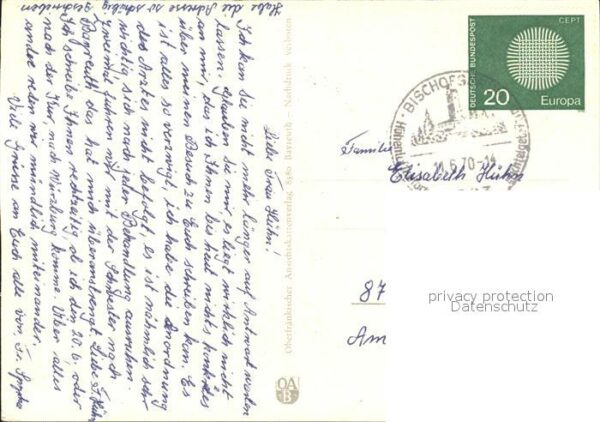 Habe die Adresse so schäbig geschrieben
Liebe Frau Hühn!
Ich kan Sie nicht mehr länger auf Antwort warten
lassen. glauben Sie mir es liegt wirklich nicht
an mir, das ich Ihnen bis heut nichts
über meinen Besuch zu Euch schreiben kan. Es
ist alles so vorzeige, ich habe die Anordnung
des Arztes nicht befolgt, es ist nähmlich sehr
wichtig, sich nach jeder Behandlung ausruhen.
Zweimal fuhren wir mit der Schwester nach
Bayreuth das hat mich überanstrengt. Liebe F. Hühn
Ich schreibe Ihnen rechtzeitig ob ich den 20.6. oder
nach der Kur nach Würzburg komme. Über alles
andre reden wir mündlich miteinander.
Viele Grüsse an Euch alle von Fr.
Oberfränkischer Ansichtskartenverlag 8580 Bayreuth - Nachdruck verboten
OA
B
DEUTSCHE BUNDESPOST
CEPT
20 Europa
BISCHOFSG
.6.70-14
Familie
Elisabeth Hühn
87
Am
privacy protection
Datenschutz